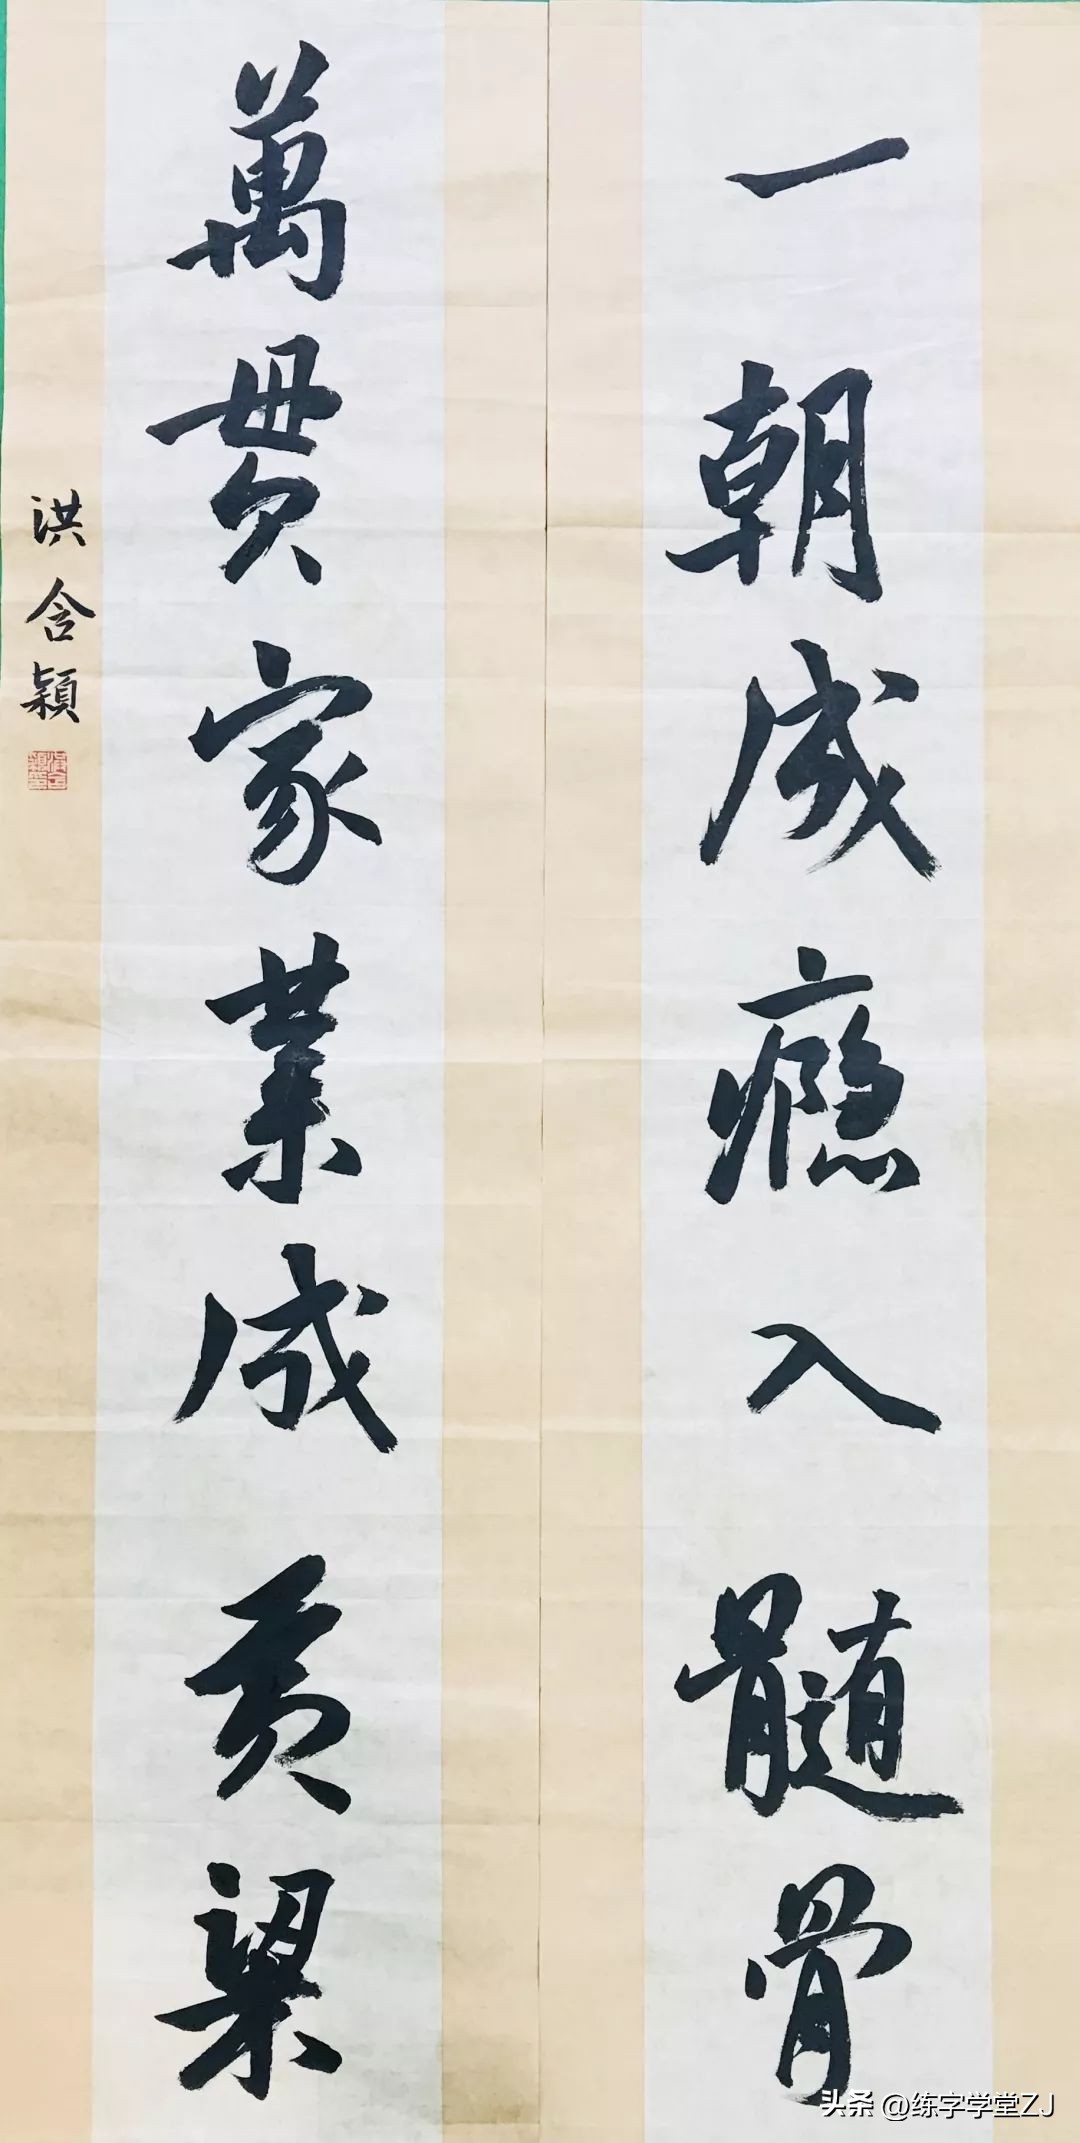 一朝成瘾入髓骨
萬貫家業成黄粱
洪含穎
头条 @练字学堂ZJ